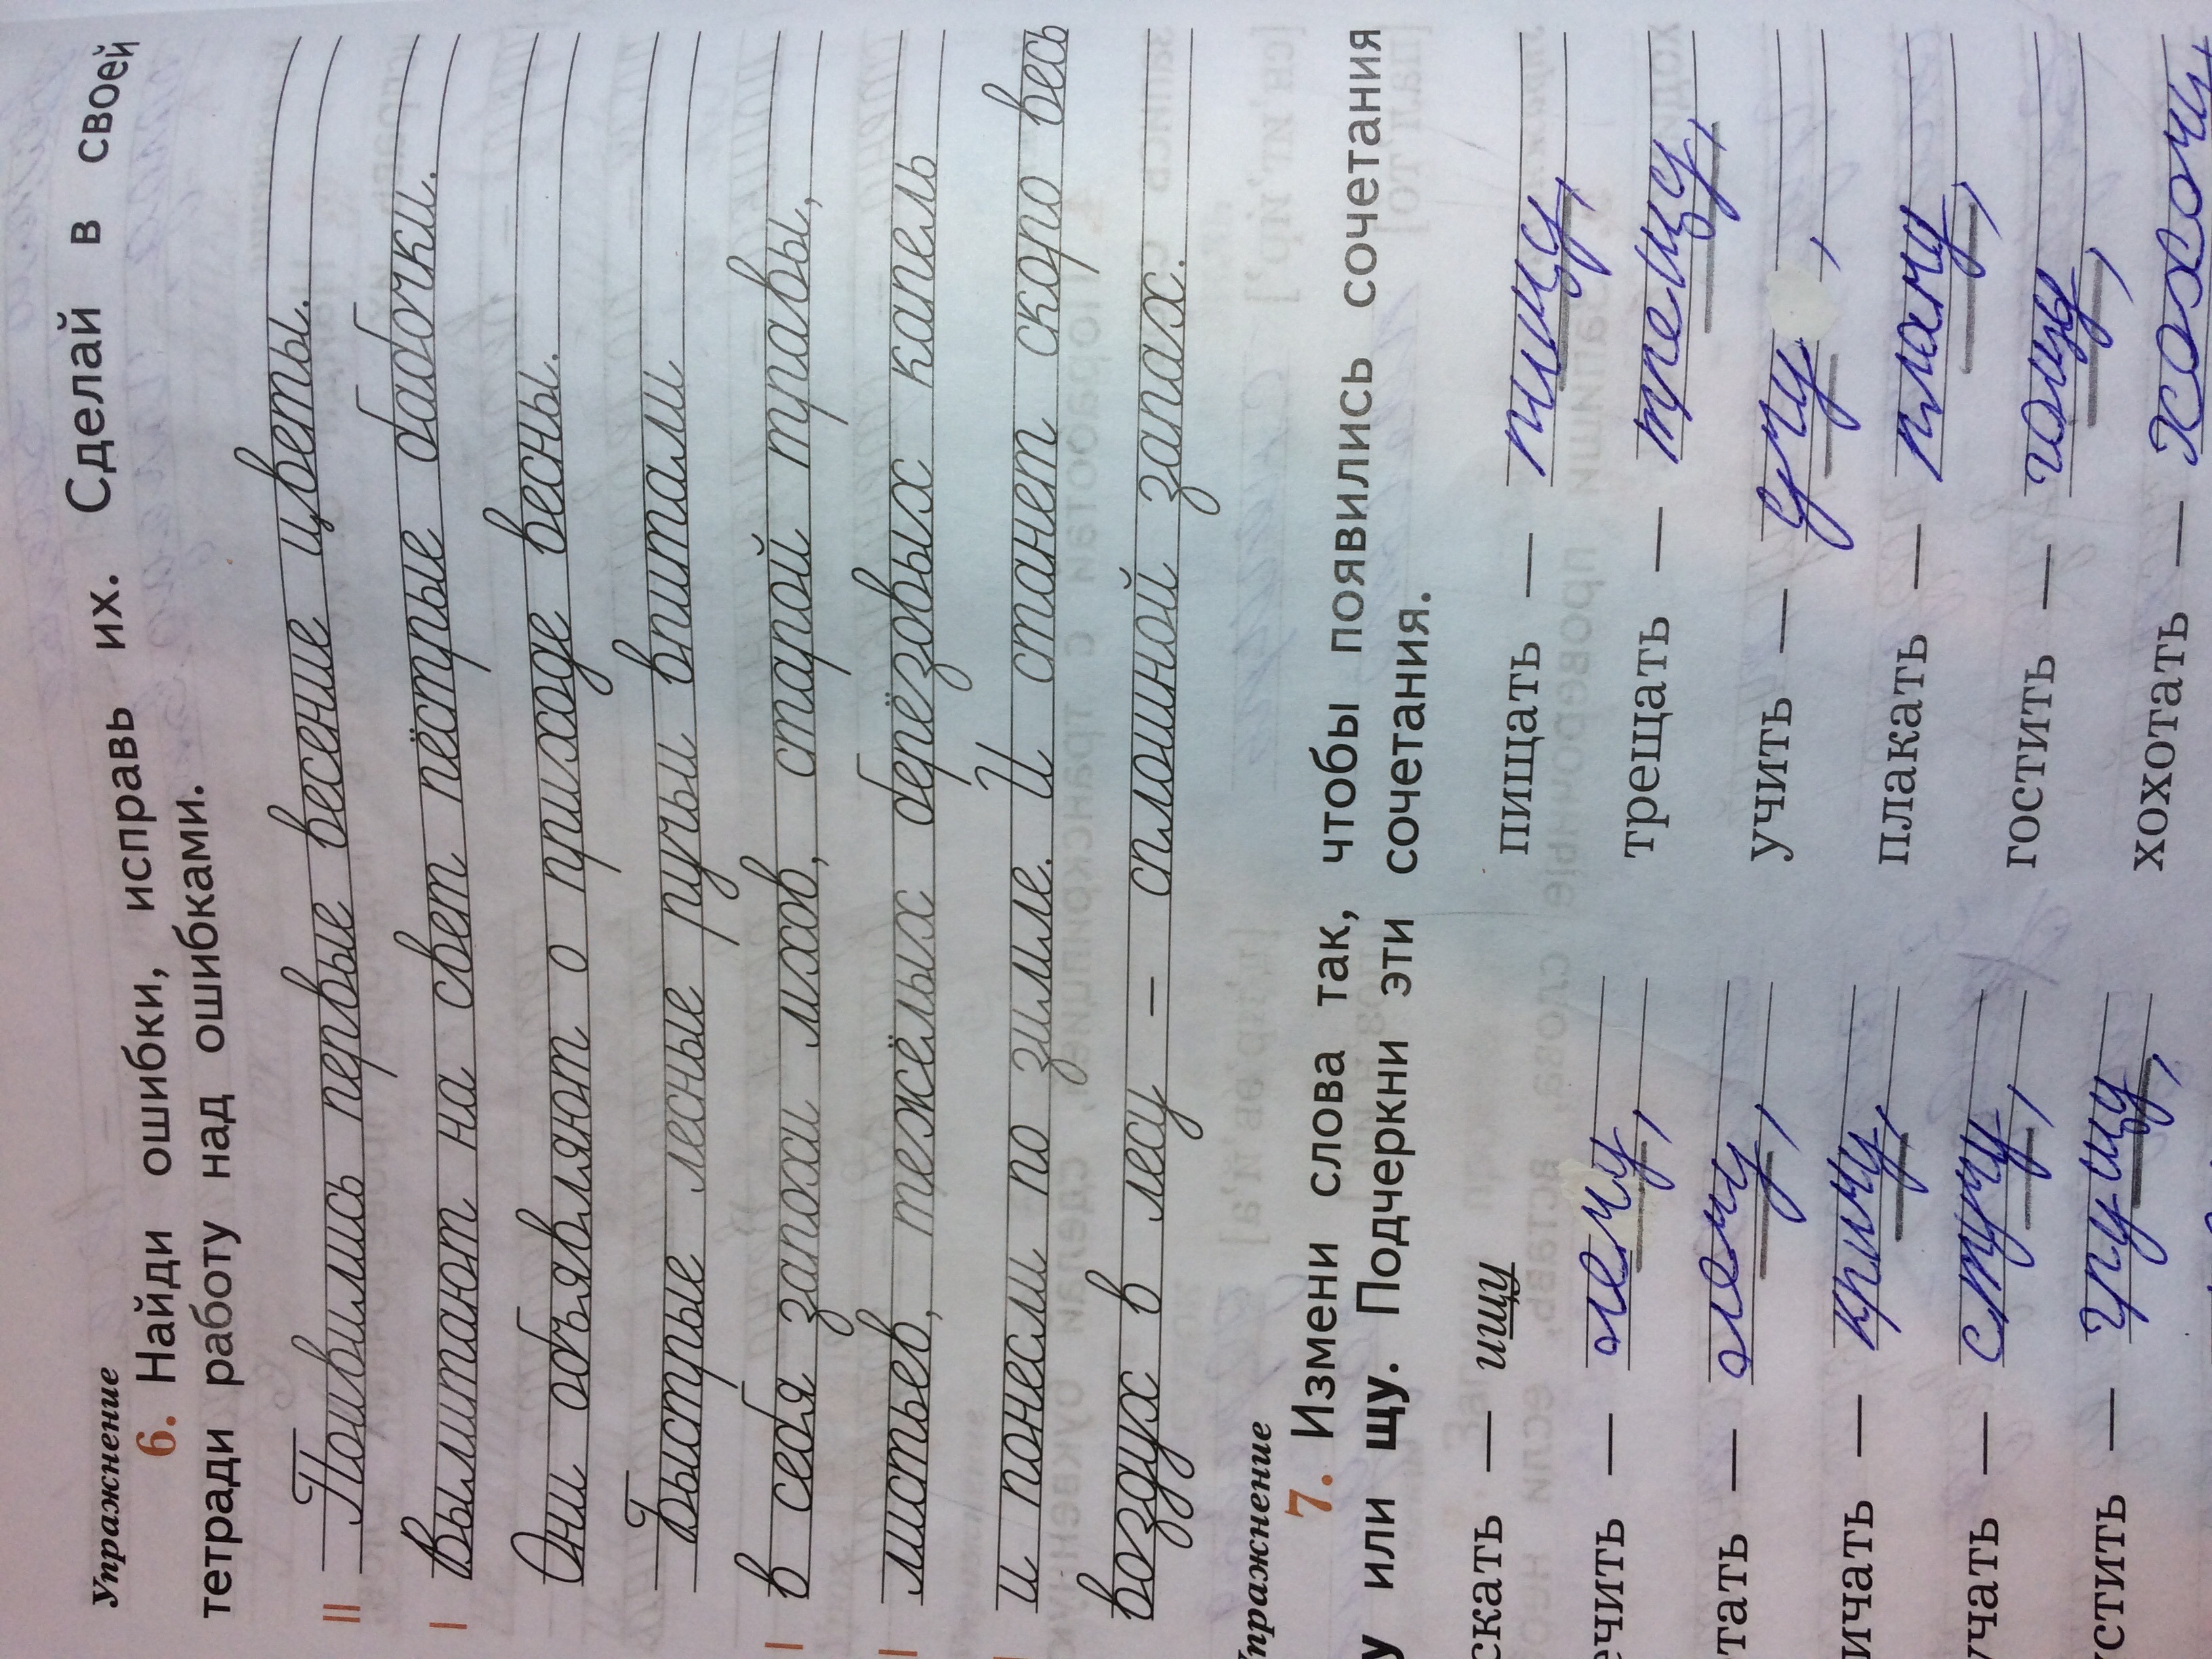 Упражнение
6. Найди ошибки, исправь их. Сделай в своей
тетради работу над ошибками.
II Поивились первые весение цветы.
I Вылитают на свет пёстрые бабочки.
Они объявляют о приходе весны.
Быстрые лесные ручьи впитали
I в себя запохи мхов, старой травы,
I листьев, тежёлых берёзовых капель
I и понесли по зимле. И станет скоро весь
воздух в лесу – сплошной запах.
Упражнение
7. Измени слова так, чтобы появились сочетания
у или щу. Подчеркни эти сочетания.
скать — ищу
пищать — пищу,
ечить — лечу,
трещать — трещу,
тать — лечу,
учить — учу,
ичать — кричу,
плакать — плачу,
учать — стучу,
гостить — гощу,
устить — грущу,
хохотать — хохочу,